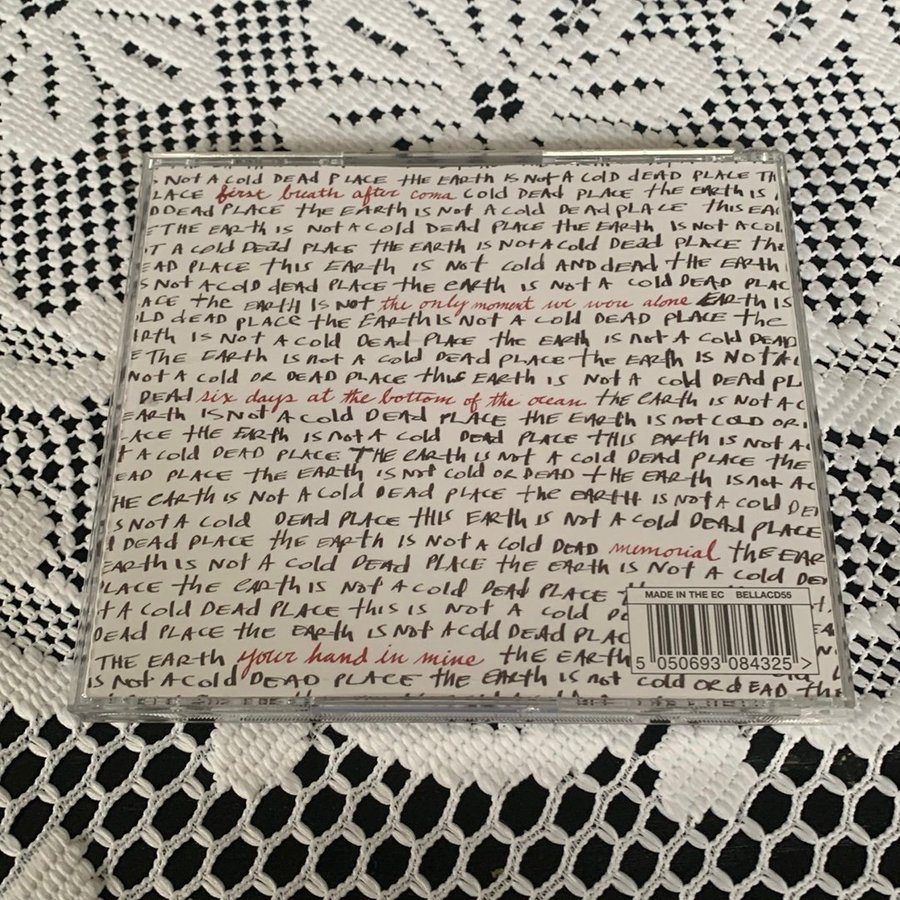 S NOT A COLD DEAD PLACE THE EARTH IS NOT A COLD dEAD PLACE TH
LACE first breath after coma COLD DEAD PLACE THE EARTH IS
D DEAD PLACE THE EARTH IS NOT A COLD DEAD PLACE THIS EAR
THE EARTH IS NOT A COLD DEAD PLACE THE EARTH IS NOT A COL
OT A COLD DEAD PLACE THE EARTH IS NOT A COLD DEAD PLACE THE
EAD PLACE THIS EARTH IS NOT COLD AND dEAd THE EARTH
S NOT A COLD dEAD PLACE THE EARTH IS NOT A COLD DEAD PLAC
ACE THE EARTH IS NOT the only moment we were alone EARTH IS
LD dEAD PLACE THE EARTH IS NOT A COLD DEAD PLACE THE
ARTH IS NOT A COLD DEAD PLACE THE EARTH IS NOT A COLD DEAD
E THE EARTH IS NOT A COLD DEAD PLACE THE EARTH IS NOT A
NOT A COLD OR DEAD PLACE THIS EARTH IS NOT A COLD DEAD PL
DEAD six days at the bottom of the ocean THE EARTH IS NOT A C
EARTH IS NOT A COLD DEAD PLACE THE EARTH IS NOT COLD OR
ACE THE EARTH IS NOT A COLD DEAD PLACE THIS EARTH IS NOT A
T A COLD DEAD PLACE THE EARTH IS NOT A COLD DEAD PLACE THE
EAD PLACE THE EARTH IS NOT COLD OR DEAD THE EARTH IS NOT A C
THE EARTH IS NOT A COLD DEAD PLACE THE EARTH IS NOT A COLD DE
S NOT A COLD DEAD PLACE THIS EARTH IS NOT A COLD DEAD PLACE
DEAD PLACE THE EARTH IS NOT A COLD DEAD memorial THE EAR
EARTH IS NOT A COLD DEAD PLACE THE EARTH IS NOT A COLD DE
LACE THE EARTH IS NOT A COLD DEAD PLACE
T A COLD DEAD PLACE THIS IS NOT A COLD
DEAD PLACE THE EARTH IS NOT A COLD DEAD PLAC
THE EARTH your hand in mine THE EARTH
IS NOT A COLD DEAD PLACE THE EARTH IS NOT COLD OR dEAD THE
MADE IN THE EC BELLACD55
5 050693 084325 >